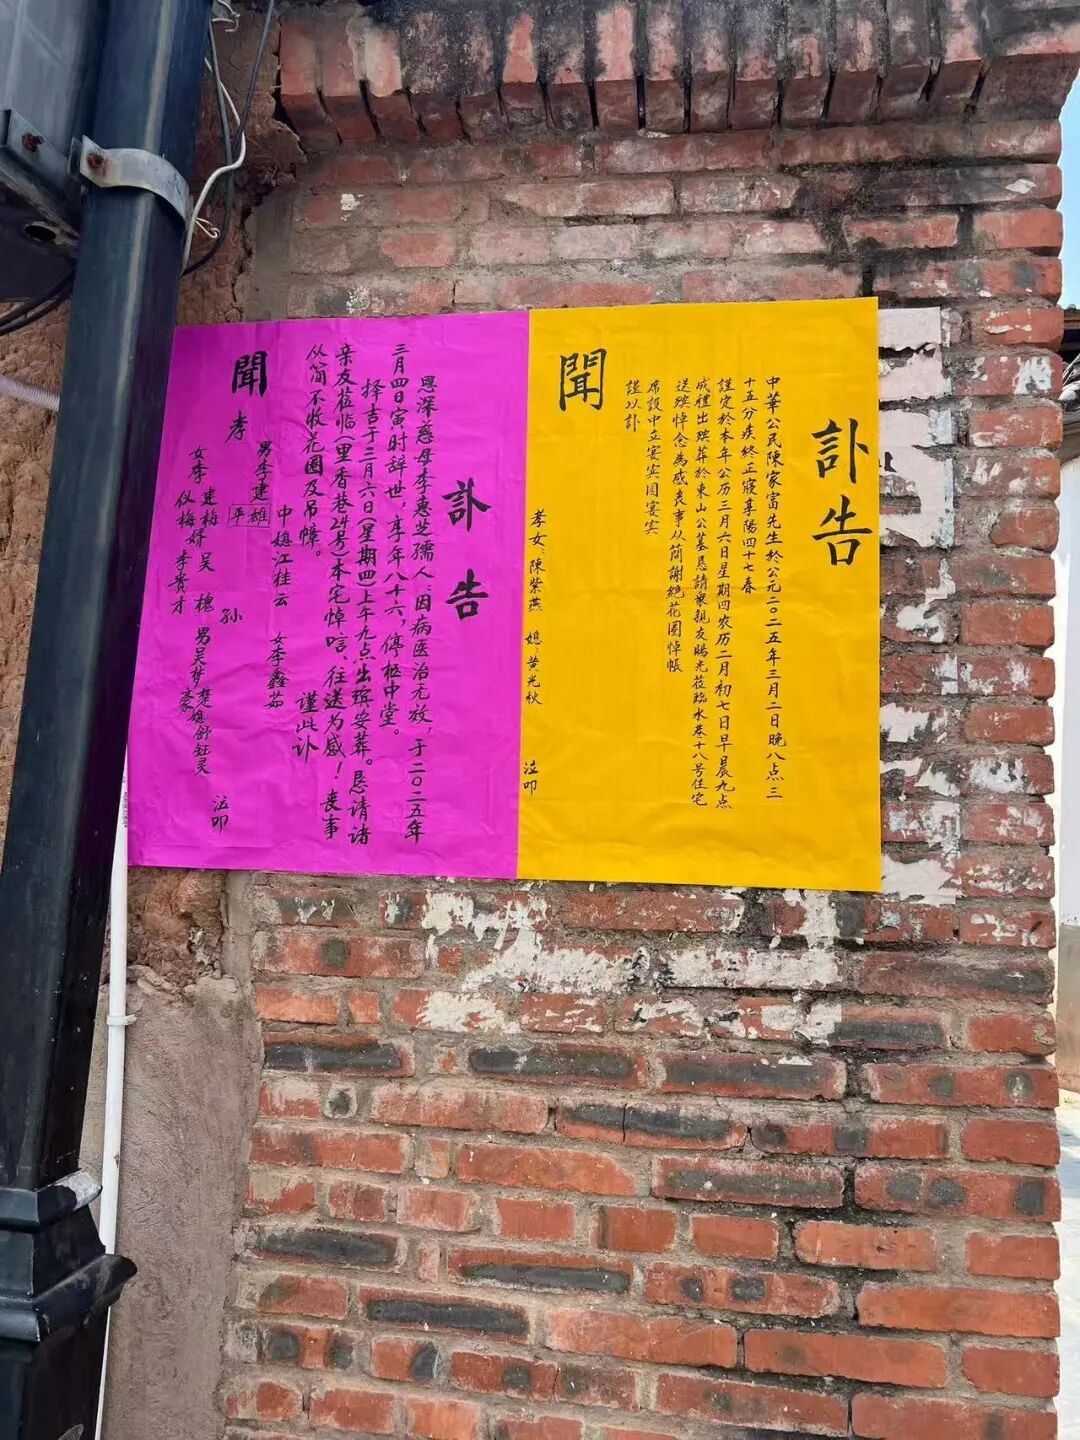 訃告
中華公民陳家富先生於公元二〇二五年三月二日晚八点三
十五分疾終正寢享陽四十七春
謹定於本年公历三月六日星期四农历二月初七日早晨九点
成禮出殡葬於東山公墓恳請衆親友賜光莅臨水巷十八号住宅
送殡悼念為感丧事从簡謝絶花圈悼帳
席設中立宴宾园宴宾
謹以訃
聞
孝女：陳紫燕 媳：黄光秋 泣叩
訃告
恩深慈母李惠芝孺人：因病医治无效，于二〇二五年
三月四日寅时辞世，享年八十六，停柩中堂。
择吉于三月六日（星期四）上午九点出殡安葬。恳请诸
亲友莅临（里香巷24号）本宅悼唁、往送为感！丧事
从简不收花圈及吊幛。
谨此讣
聞
孝
男李建雄
平
中 媳江桂云 女李鑫茹
女李建梅 婿吴
仪梅 李贵才
孙 男吴梦楚 媳舒钰灵
豪
泣叩